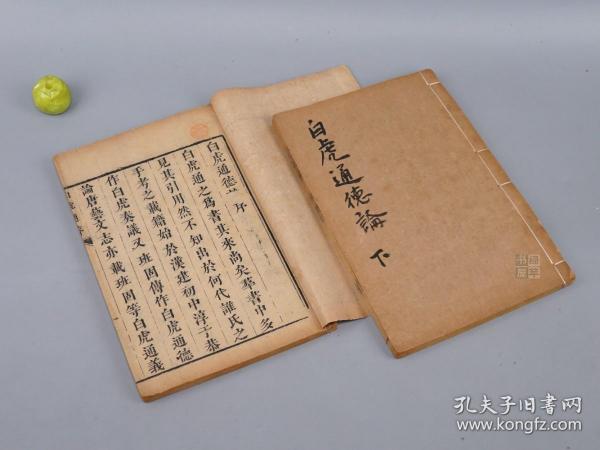 白虎通德論序
白虎通之為書其來尚矣羣書中多
見其引用然不知出於何代誰氏之
手考之載籍始於漢建初中淳于恭
作白虎奏議又班固傳作白虎通德
論唐藝文志亦載班固等白虎通義
白虎通德論
下
孔夫子旧书网
www.kongfz.com